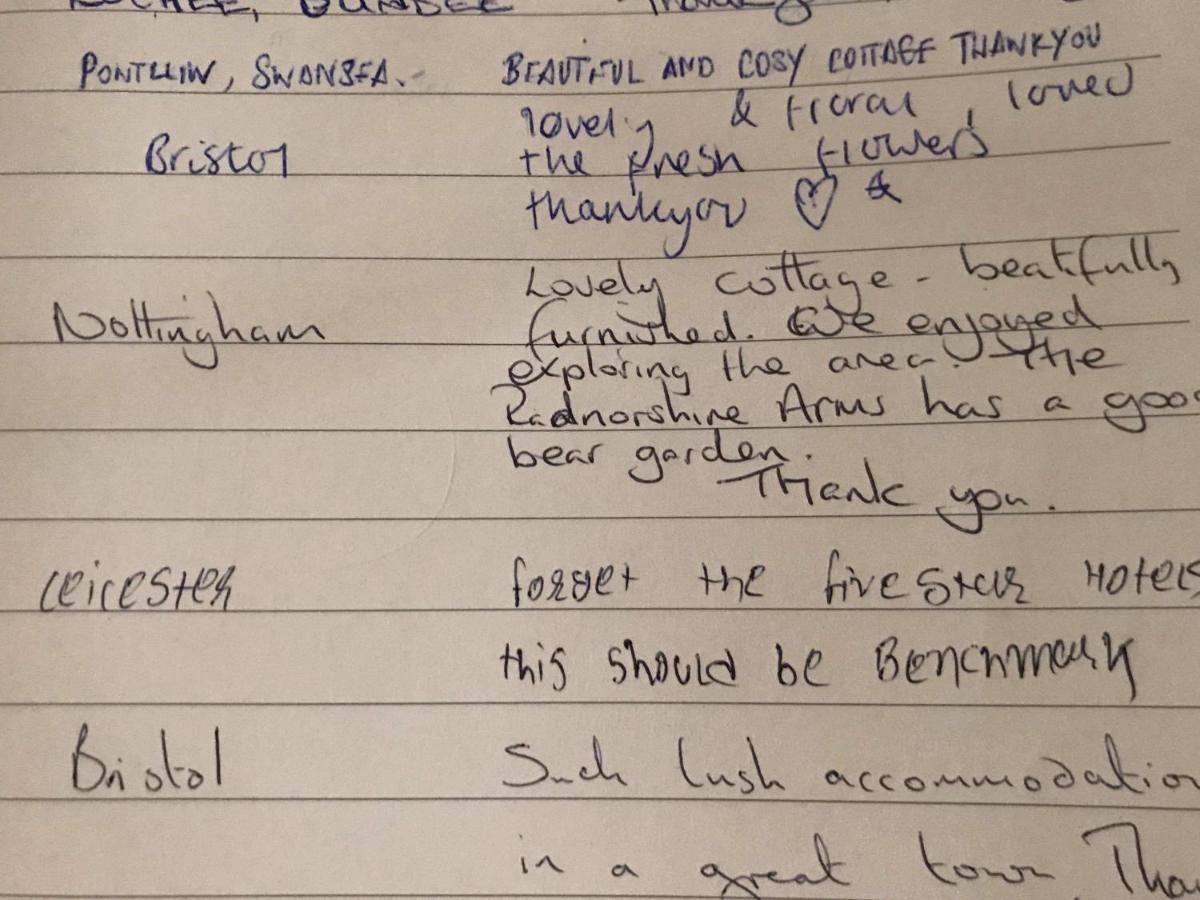 DUNDEE
PONTLLIW, SWANSEA. BEAUTIFUL AND COSY COTTAGE THANKYOU
lovely & floral, loved
Bristol the fresh flowers
thankyou
Lovely cottage - beatifully
Nottingham furnished. We enjoyed
exploring the area. The
Radnorshire Arms has a good
bear garden.
Thank you.
Leicester forget the five star Hotels
this should be Benchmark
Bristol Such lush accommodation
in a great town